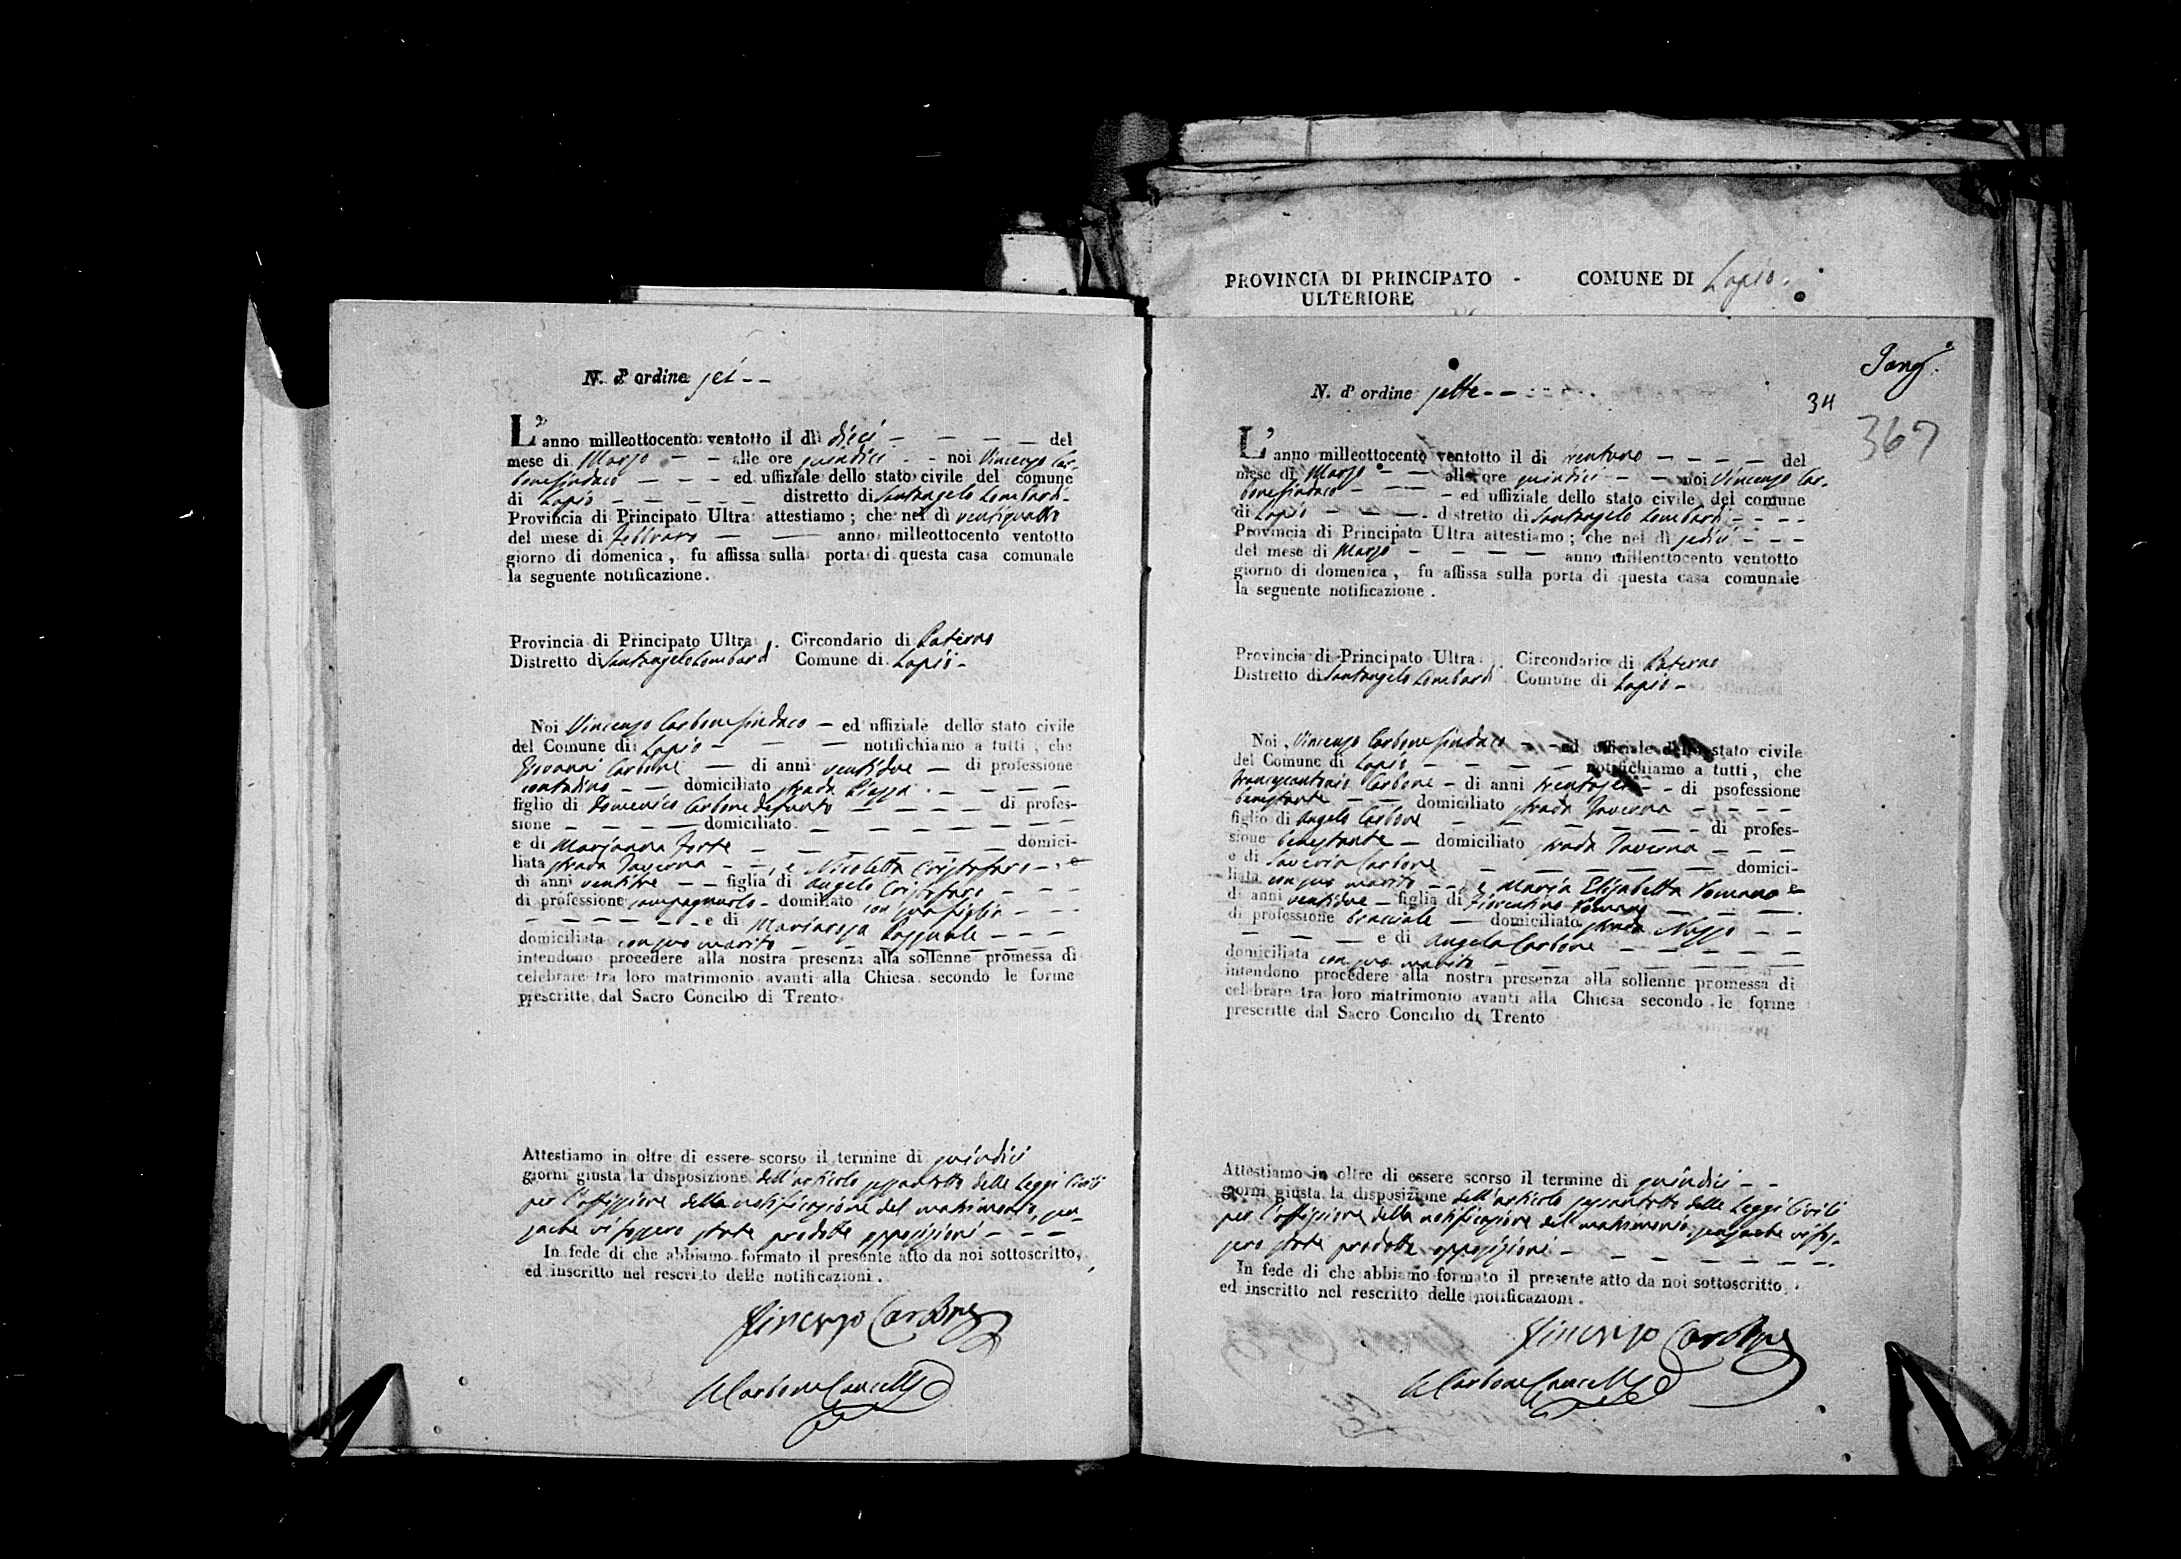 N. d' ordine sei - -
L' anno milleottocento ventotto il di dieci - - - - del
mese di Marzo - - alle ore quindici - - noi Vincenzo Car-
bone sindaco - - - ed uffiziale dello stato civile del comune
di Lapio - - - - - distretto di Santangelo Lombardi -
Provincia di Principato Ultra attestiamo ; che nel dì ventiquattro
del mese di Febbraro - - anno milleottocento ventotto
giorno di domenica , fu affissa sulla porta di questa casa comunale
la seguente notificazione .
Provincia di Principato Ultra . Circondario di Paterno
Distretto di Santangelo Lombardi Comune di Lapio -
Noi Vincenzo Carbone sindaco - ed uffiziale dello stato civile
del Comune di Lapio - - - notifichiamo a tutti , che
Giovanni Carbone - di anni ventidue - di professione
contadino - - domiciliato strada Piazza - - - - -
figlio di Domenico Carbone defunto - - - - di profes-
sione - - - - domiciliato - - - - - - -
e di Marianna Forte - - - - - - domici-
liata strada Taverna - - , e Nicoletta Cristofaro - , -
di anni ventitre - - figlia di Angelo Cristofaro - - -
di professione campagnuolo - domiliato con sua figlia - - -
- - - - - - e di Mariarosa Pasquale - - -
domiciliata con suo marito - -
intendono procedere alla nostra presenza alla sollenne promessa di
celebrare tra loro matrimonio avanti alla Chiesa secondo le forme
prescritte dal Sacro Concilio di Trento
Attestiamo in oltre di essere scorso il termine di quindici
giorni giusta la disposizione dell'articolo sessantotto delle Leggi Civili
per l'affissione della notificazione del matrimonio, sen-
zache vi fossero state prodotte opposizioni - - -
In fede di che abbiamo formato il presente atto da noi sottoscritto,
ed inscritto nel rescritto delle notificazioni .
Vincenzo Carbone
Carbone Cancell.
PROVINCIA DI PRINCIPATO - COMUNE DI Lapio .
ULTERIORE
34
367
N. d' ordine sette - -
L' anno milleottocento ventotto il di ventuno - - - - del
mese di Marzo - - alle ore quindici - - noi Vincenzo Car-
bone sindaco - - - ed uffiziale dello stato civile del comune
di Lapio - - - . distretto di Santangelo Lombardi - - - -
Provincia di Principato Ultra attestiamo ; che nel dì sedici - - -
del mese di Marzo - - - - anno milleottocento ventotto
giorno di domenica , fu affissa sulla porta di questa casa comunale
la seguente notificazione .
Provincia di Principato Ultra . Circondario di Paterno
Distretto di Santangelo Lombardi Comune di Lapio -
Noi Vincenzo Carbone sindaco - - ed officiale dello stato civile
del Comune di Lapio - - - - notifichiamo a tutti , che
Carbone - di anni trentasei - - di psofessione
benestante - - domiciliato strada Taverna - - - -
figlio di Angelo Carbone - - - - - - di profes-
sione benestante - domiciliato strada Taverna - - -
e di Saveria Carbone - - - - - - domici-
liata con suo marito - - , e Maria Elisabetta Romano -
di anni ventidue - figlia di Fiorentino Romano - - - .
di professione bracciale - domiciliato strada Nuzzo - -
- - - e di Angela Carbone - - - - -
domiciliata con suo marito - - - - - - -
intendono procedere alla nostra presenza alla sollenne promessa di
celebrare tra loro matrimonio avanti alla Chiesa secondo le forme
prescritte dal Sacro Concilio di Trento
Attestiamo in oltre di essere scorso il termine di quindici - -
giorni giusta la disposizione dell'articolo sessantotto delle Leggi Civili
per l'affissione della notificazione del matrimonio, senzache vi fos-
sero state prodotte opposizioni - - - - - - .
In fede di che abbiamo formato il presente atto da noi sottoscritto ,
ed inscritto nel rescritto delle notificazioni .
Vincenzo Carbone
Carbone Cancell.